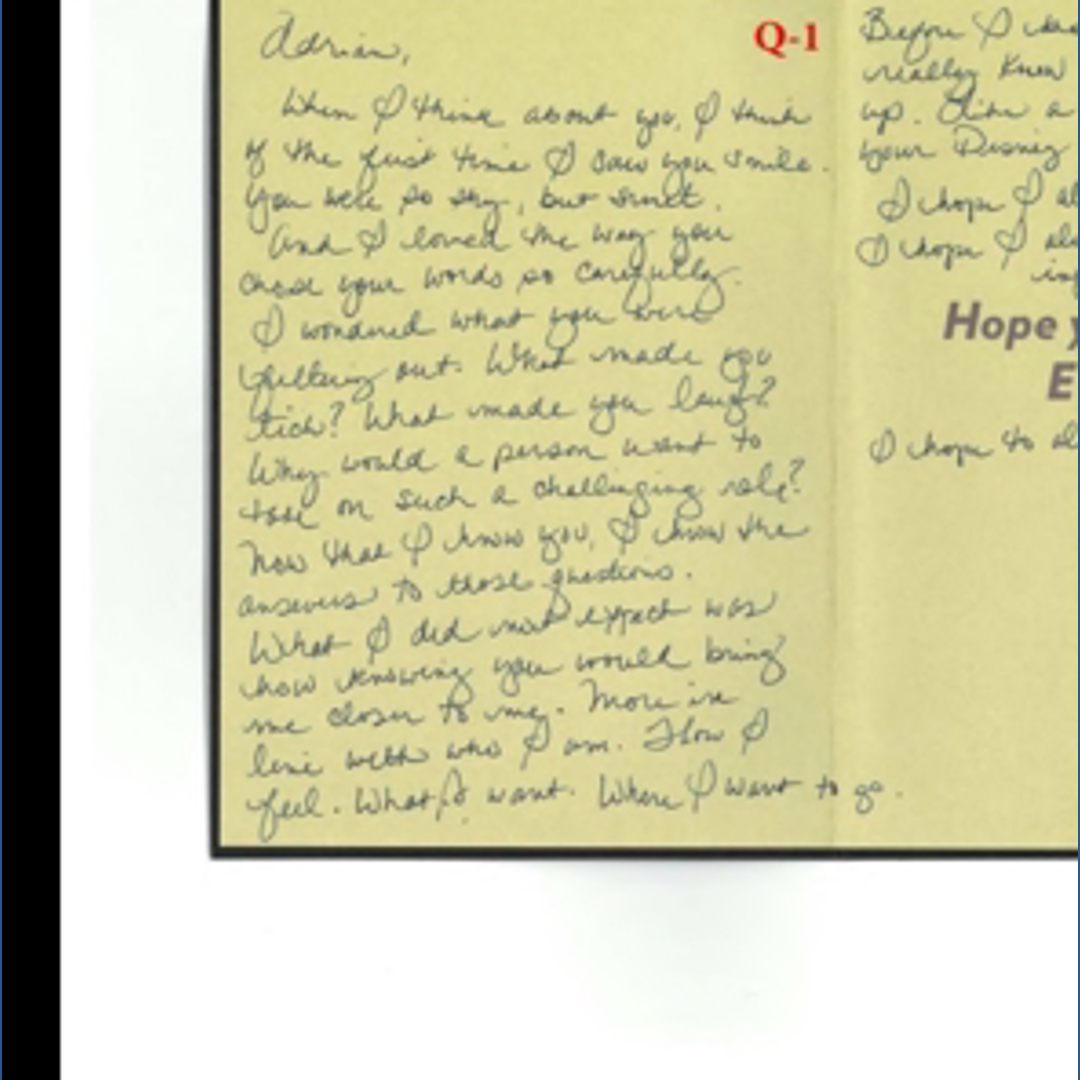 Adrian,
Q-1
When I think about you, I think
of the first time I saw you smile.
You were so shy, but sweet.
And I loved the way you
chose your words so carefully.
I wondered what you were
filtering out. What made you
tick? What made you laugh?
Why would a person want to
take on such a challenging role?
Now that I know you, I know the
answers to those questions.
What I did not expect was
how knowing you would bring
me closer to me. More in
line with who I am. How I
feel. What I want. Where I want to go.
Before I
really knew
up. Like a
your Disney
I hope I al
I hope I al
Hope y
E
I hope to al